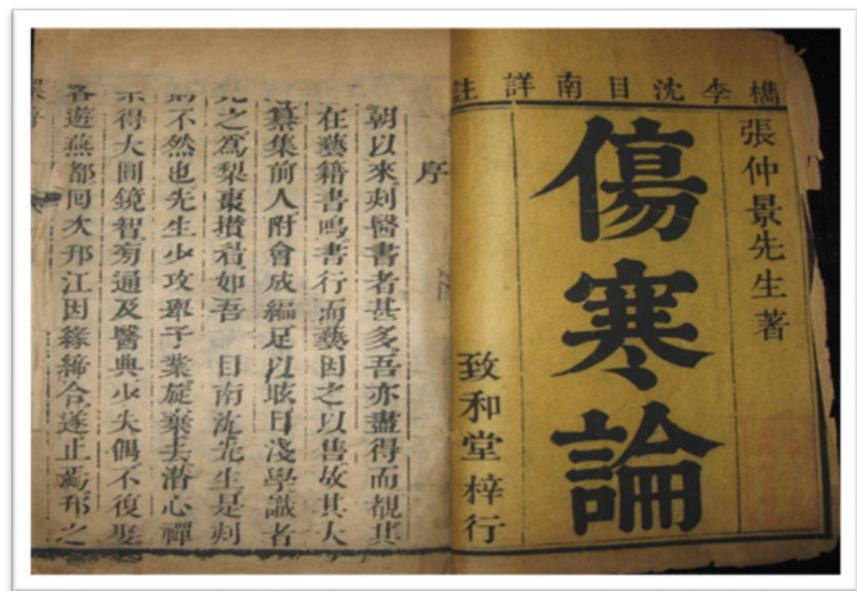 檇李沈目南詳註
張仲景先生著
傷寒論
致和堂梓行
序
朝以來刻醫書者甚多吾亦盡得而覩其
在藝籍書鳴書行而藝因之以售故其大
纂集前人附會成編足以眩目淺學識者
之為梨棗攢眉如吾 目南沈先生是刻
則不然也先生少攻舉子業旋棄去潛心禪
宗得大圓鏡智旁通及醫典少失偶不復娶
客遊燕都囘次邗江因緣締合遂止焉邗之